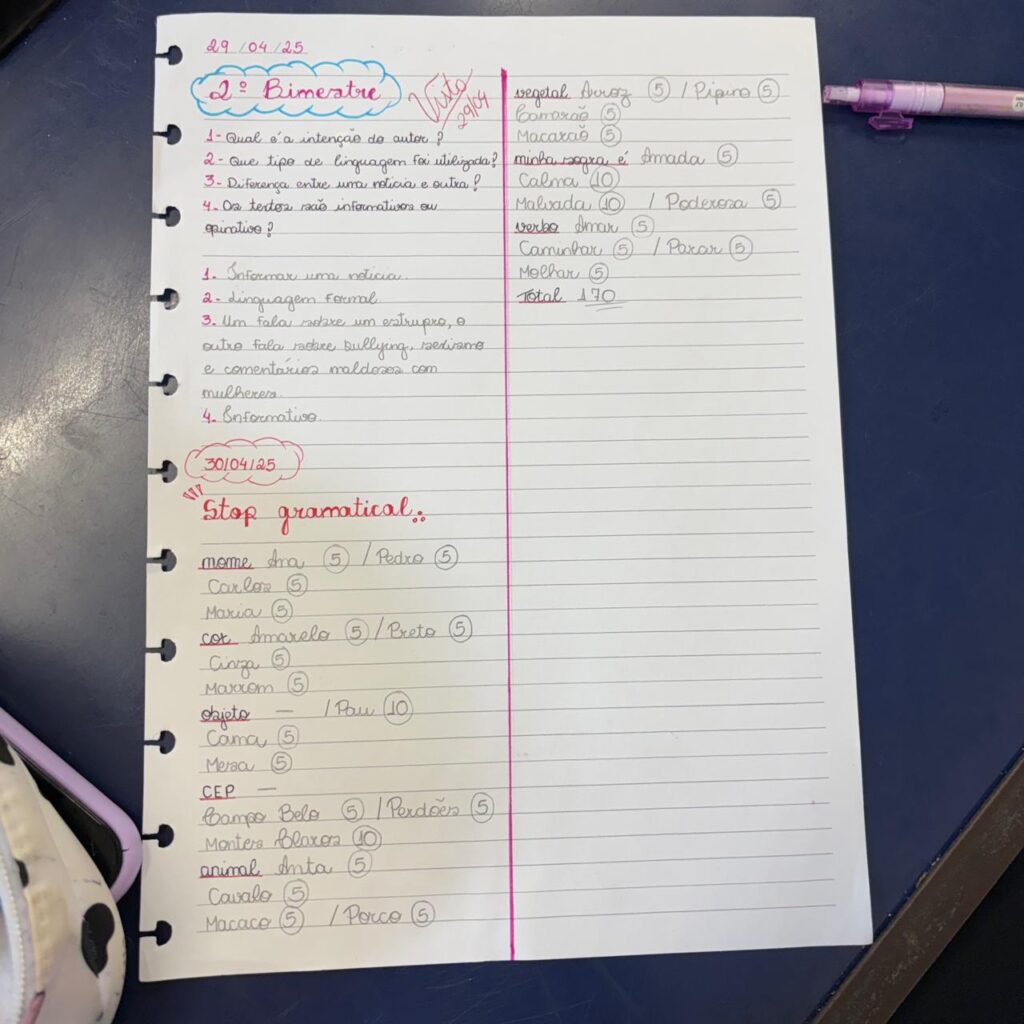 29/04/25
2º Bimestre
Visto
29/04
1- Qual é a intenção do autor?
2- Que tipo de linguagem foi utilizada?
3- Diferença entre uma notícia e outra?
4- Os textos são informativos ou
opinativo?
1. Informar uma notícia.
2- Linguagem formal.
3. Um fala sobre um estrupro, o
outro fala sobre bullying, sexismo
e comentários maldoses com
mulheres.
4. Informativo.
30/04/25
Stop gramatical..
nome Ana 5 / Pedro 5
Carlos 5
Maria 5
cor Amarelo 5 / Preto 5
Cinza 5
Marrom 5
objeto — / Pau 10
Cama 5
Mesa 5
CEP —
Campo Belo 5 / Perdões 5
Montes Claros 10
animal Anta 5
Cavalo 5
Macaco 5 / Porco 5
vegetal Arroz 5 / Pipino 5
Camarão 5
Macarão 5
minha sogra é Amada 5
Calma 10
Malvada 10 / Poderosa 5
verbo Amar 5
Caminhar 5 / Parar 5
Molhar 5
Total 170